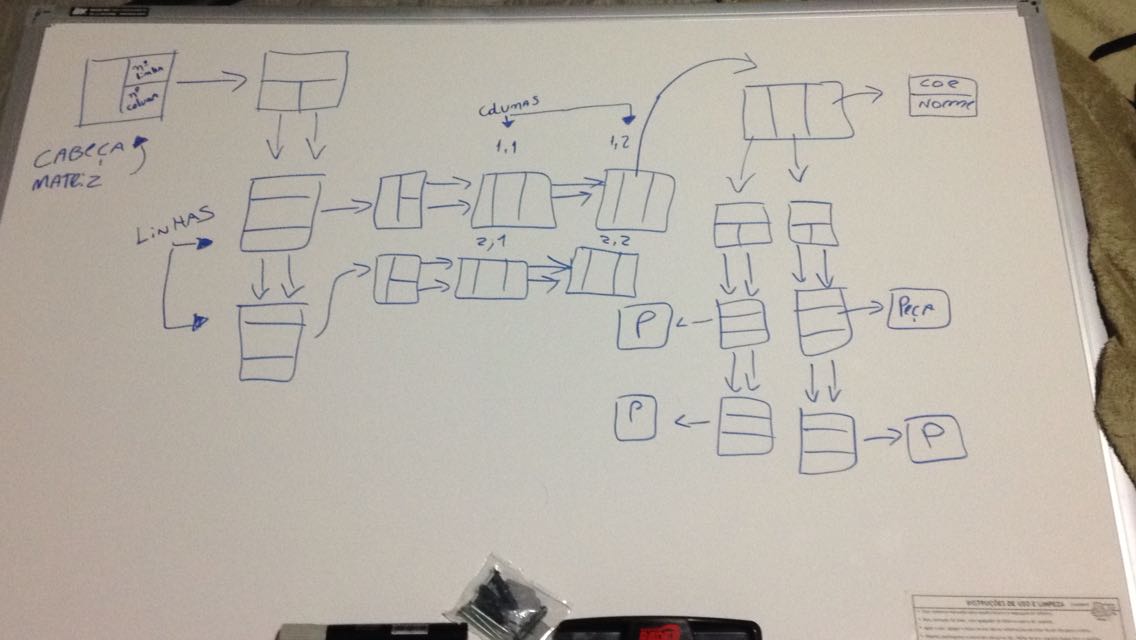 nº
Linha
nº
coluna
CABEÇA
MATRIZ
COLUNAS
1,1
1,2
LINHAS
2,1
2,2
COR
NOME
P
Peça
P
P
INSTRUÇÕES DE USO E LIMPEZA